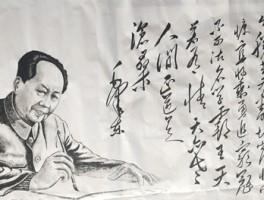 慷宜将剩勇追穷寇
不可沽名学霸王天
若有情天亦老
人间正道是
沧桑
毛泽东